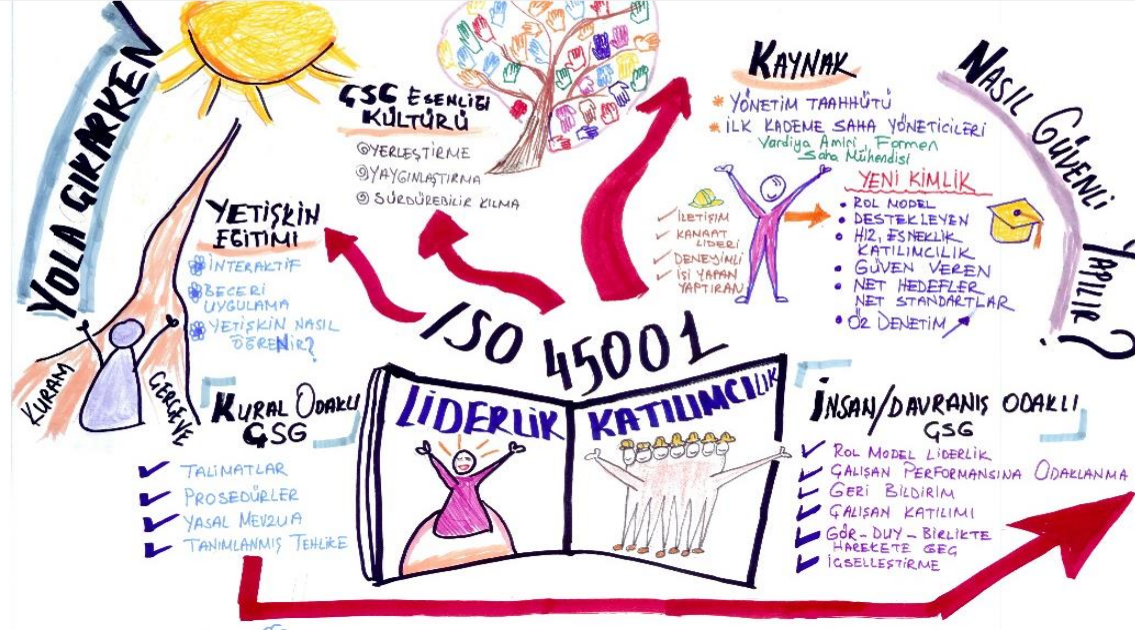 YOLA ÇIKARKEN
KURAM
ÇERÇEVE
YETİŞKİN
EĞİTİMİ
İNTERAKTİF
BECERİ
UYGULAMA
YETİŞKİN NASIL
ÖĞRENİR?
ÇSG ESENLİĞİ
KÜLTÜRÜ
YERLEŞTİRME
YAYGINLAŞTIRMA
SÜRDÜREBİLİR KILMA
KAYNAK
YÖNETİM TAAHHÜTÜ
İLK KADEME SAHA YÖNETİCİLERİ
Vardiya Amiri, Formen
Saha Mühendisi
İLETİŞİM
KANAAT
LİDERİ
DENEYİMLİ
İŞİ YAPAN
YAPTIRAN
YENİ KİMLİK
ROL MODEL
DESTEKLEYEN
HIZ, ESNEKLİK
KATILIMCILIK
GÜVEN VEREN
NET HEDEFLER
NET STANDARTLAR
ÖZ DENETİM
NASIL GÜVENLİ
YAPILIR?
ISO 45001
LİDERLİK
KATILIMCILIK
KURAL ODAKLI
ÇSG
TALİMATLAR
PROSEDÜRLER
YASAL MEVZUA
TANIMLANMIŞ TEHLİKE
İNSAN/DAVRANIŞ ODAKLI
ÇSG
ROL MODEL LİDERLİK
ÇALIŞAN PERFORMANSINA ODAKLANMA
GERİ BİLDİRİM
ÇALIŞAN KATILIMI
GÖR-DUY-BİRLİKTE
HAREKETE GEÇ
İÇSELLEŞTİRME